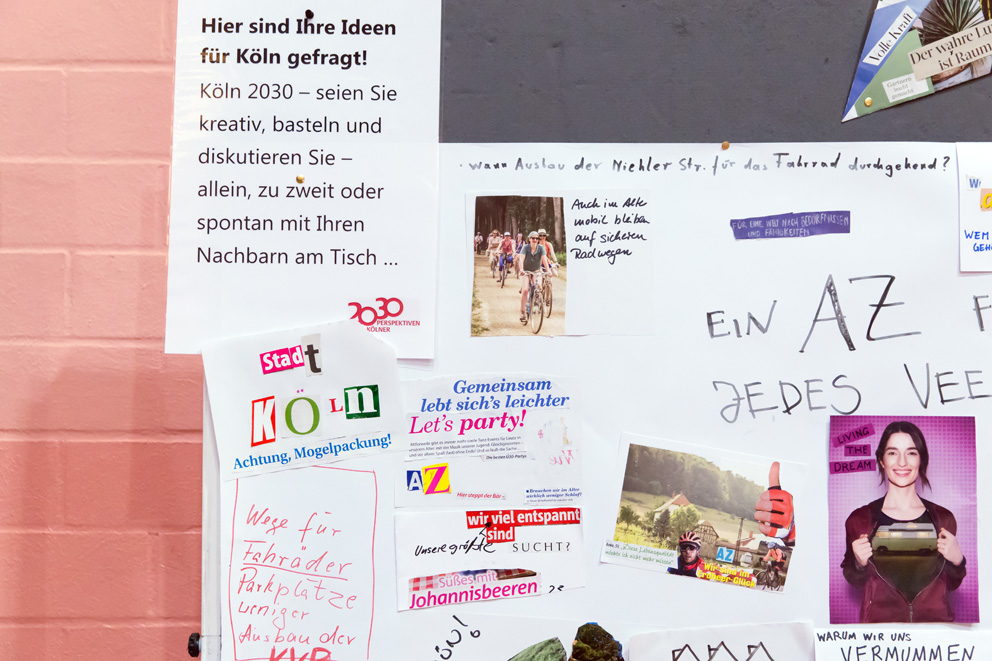 Hier sind Ihre Ideen
für Köln gefragt!
Köln 2030 – seien Sie
kreativ, basteln und
diskutieren Sie –
allein, zu zweit oder
spontan mit Ihren
Nachbarn am Tisch ...
2030
PERSPEKTIVEN
KÖLNER
Volle Kraft
Der wahre Lu
ist Raum
Gärtnern
leicht
gemacht
· wann Ausbau der Niehler Str. für das Fahrrad durchgehend?
Auch im Alter
mobil bleiben
auf sicheren
Radwegen
FÜR EINE WELT NACH BEDÜRFNISSEN
UND FÄHIGKEITEN
WEM
GEHÖ
EIN AZ F
JEDES VEE
Stadt
KÖLn
Achtung, Mogelpackung!
Wege für
Fahrräder
Parkplätze
weniger
Ausbau der
KVB
Gemeinsam
lebt sich's leichter
Let's party!
Die besten Ü30-Partys
AZ
Hier steppt der Bär
■ Brauchen wir im Alter
wirklich weniger Schlaf?
wir viel entspannt
sind
Unsere größte SUCHT?
Süßes mit
Johannisbeeren
AZ
Wir sind im
Grünen-Glück
LIVING
THE
DREAM
WARUM WIR UNS
VERMUMMEN